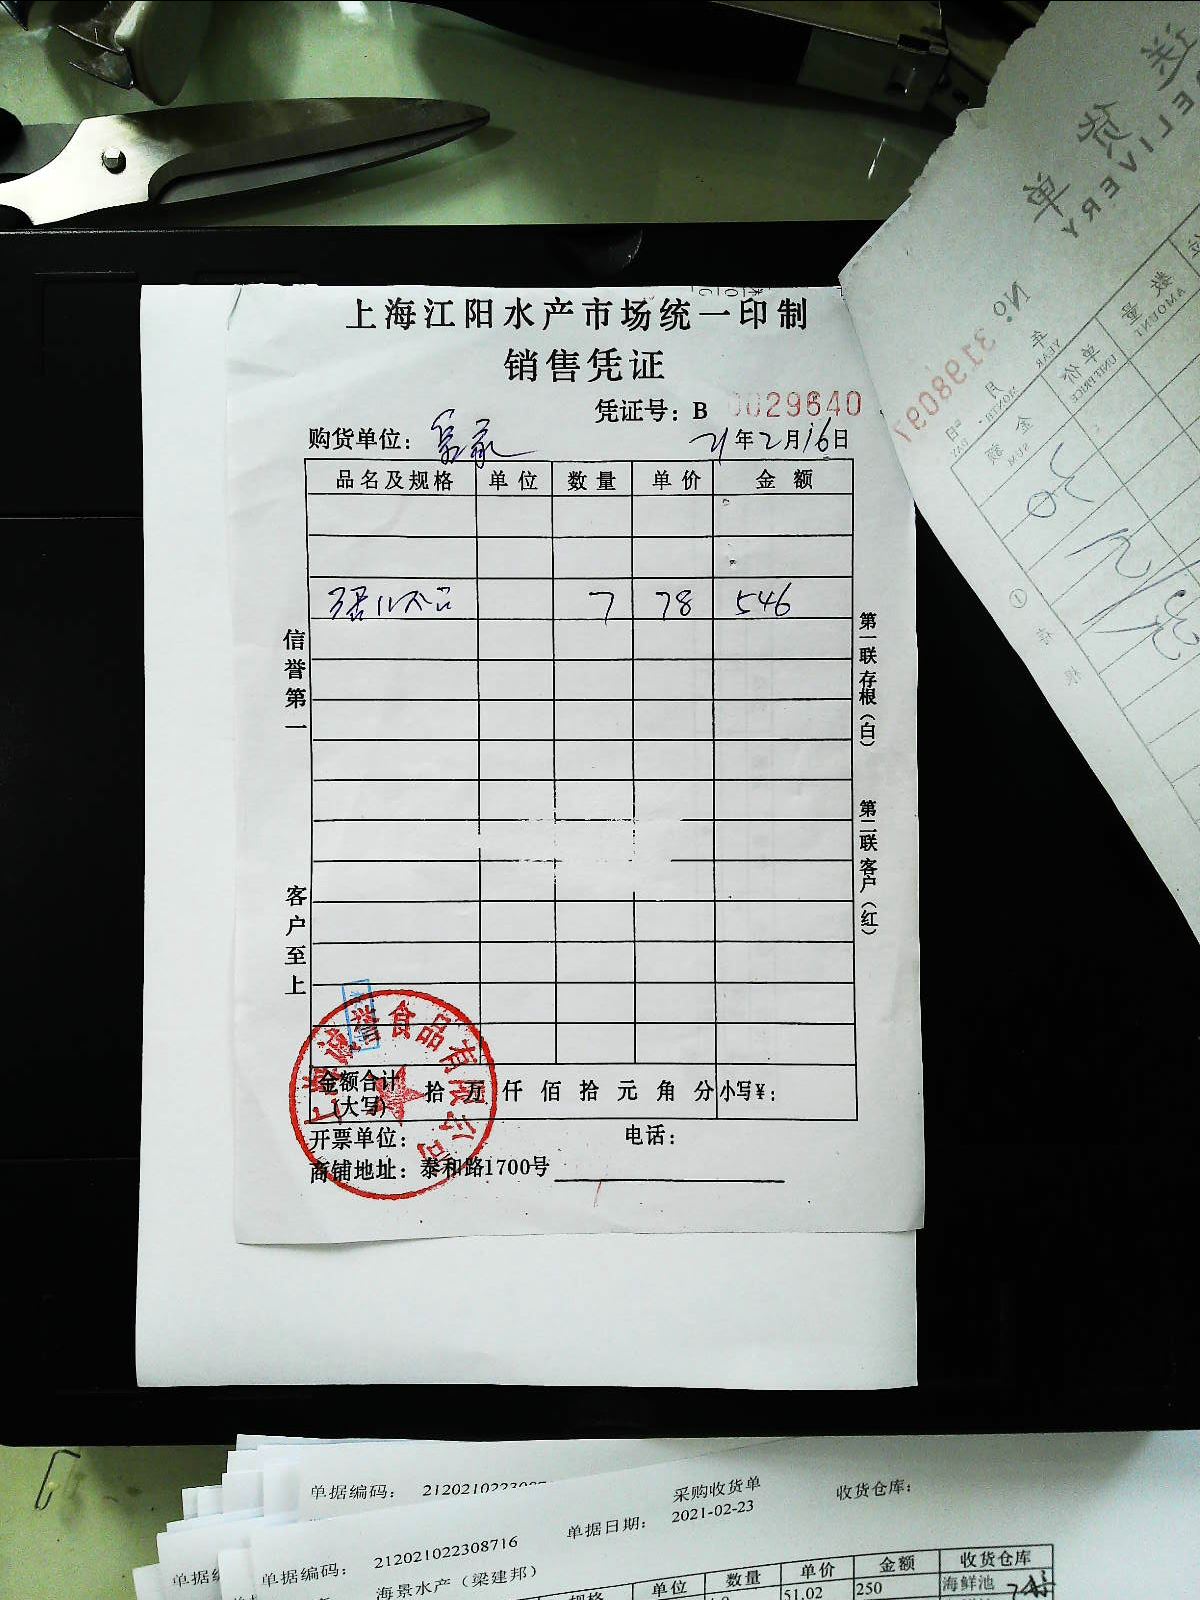 上海江阳水产市场统一印制
销售凭证
凭证号：B 0029640
购货单位：
21年2月16日
品名及规格 单位 数量 单价 金额
7 78 546
信誉第一
客户至上
第一联存根（白）
第二联客户（红）
金额合计（大写） 拾万仟佰拾元角分 小写¥：
开票单位： 电话：
商铺地址：泰和路1700号
诚誉食品有限公司
DELIVERY
单
No 3798097
年 YEAR 月 MONTH 日 DAY
数量 AMOUNT
单价 UNIT PRICE
金额 SUM
单据编码：
采购收货单
收货仓库：
单据编码： 212021022308716
单据日期： 2021-02-23
海景水产（梁建邦）
单位 数量 单价 金额 收货仓库
51.02 250 海鲜池